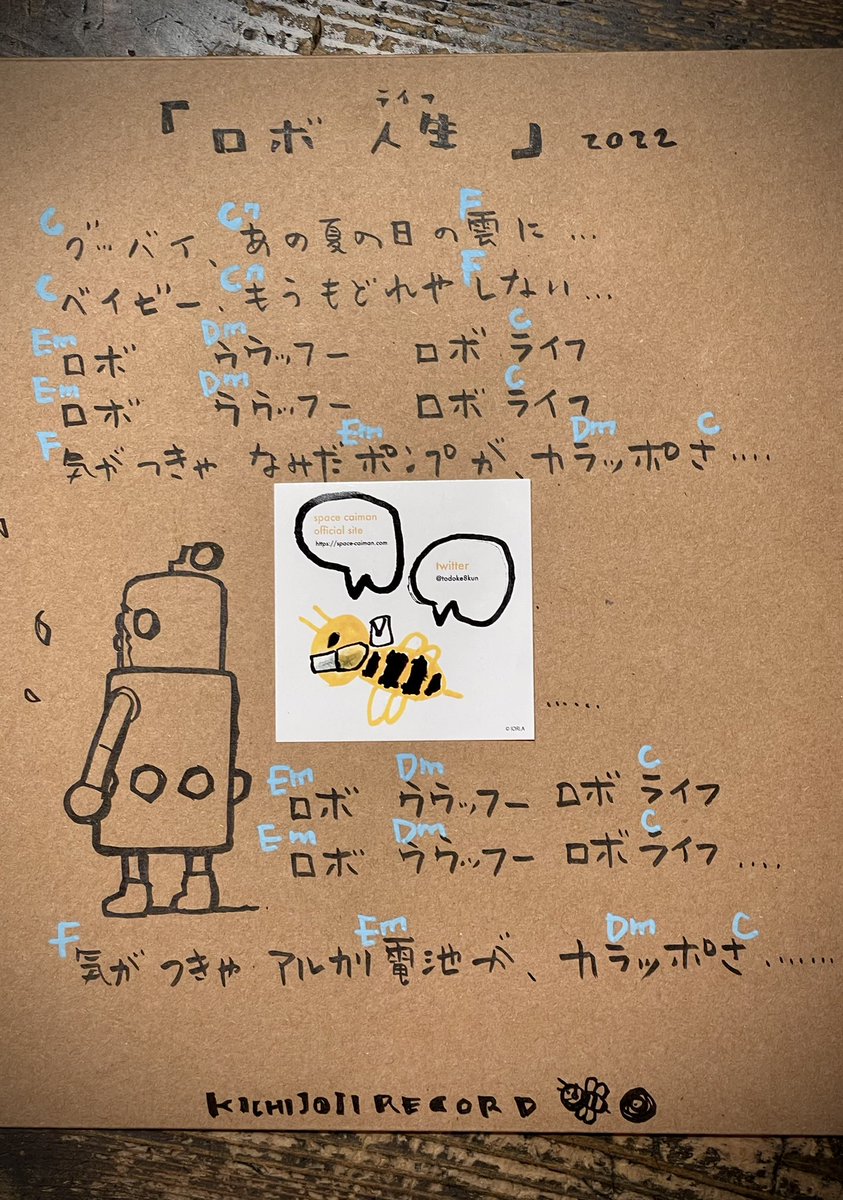 ライフ
「ロボ 人生」2022
C C7 F
グッバイ、あの夏の日の雲に...
C C7 F
ベイビー、もうもどれやしない...
Em Dm C
ロボ ウウッフー ロボ ライフ
Em Dm C
ロボ ウウッフー ロボ ライフ
F Em Dm C
気がつきゃ なみだポンプが、カラッポさ....
space caiman
official site
https://space-caiman.com
twitter
@todoke8kun
© IORI.A
......
Em Dm C
ロボ ウウッフー ロボ ライフ
Em Dm C
ロボ ウウッフー ロボ ライフ....
F Em Dm C
気がつきゃ アルカリ電池が、カラッポさ.......
KICHIJOJI RECORD